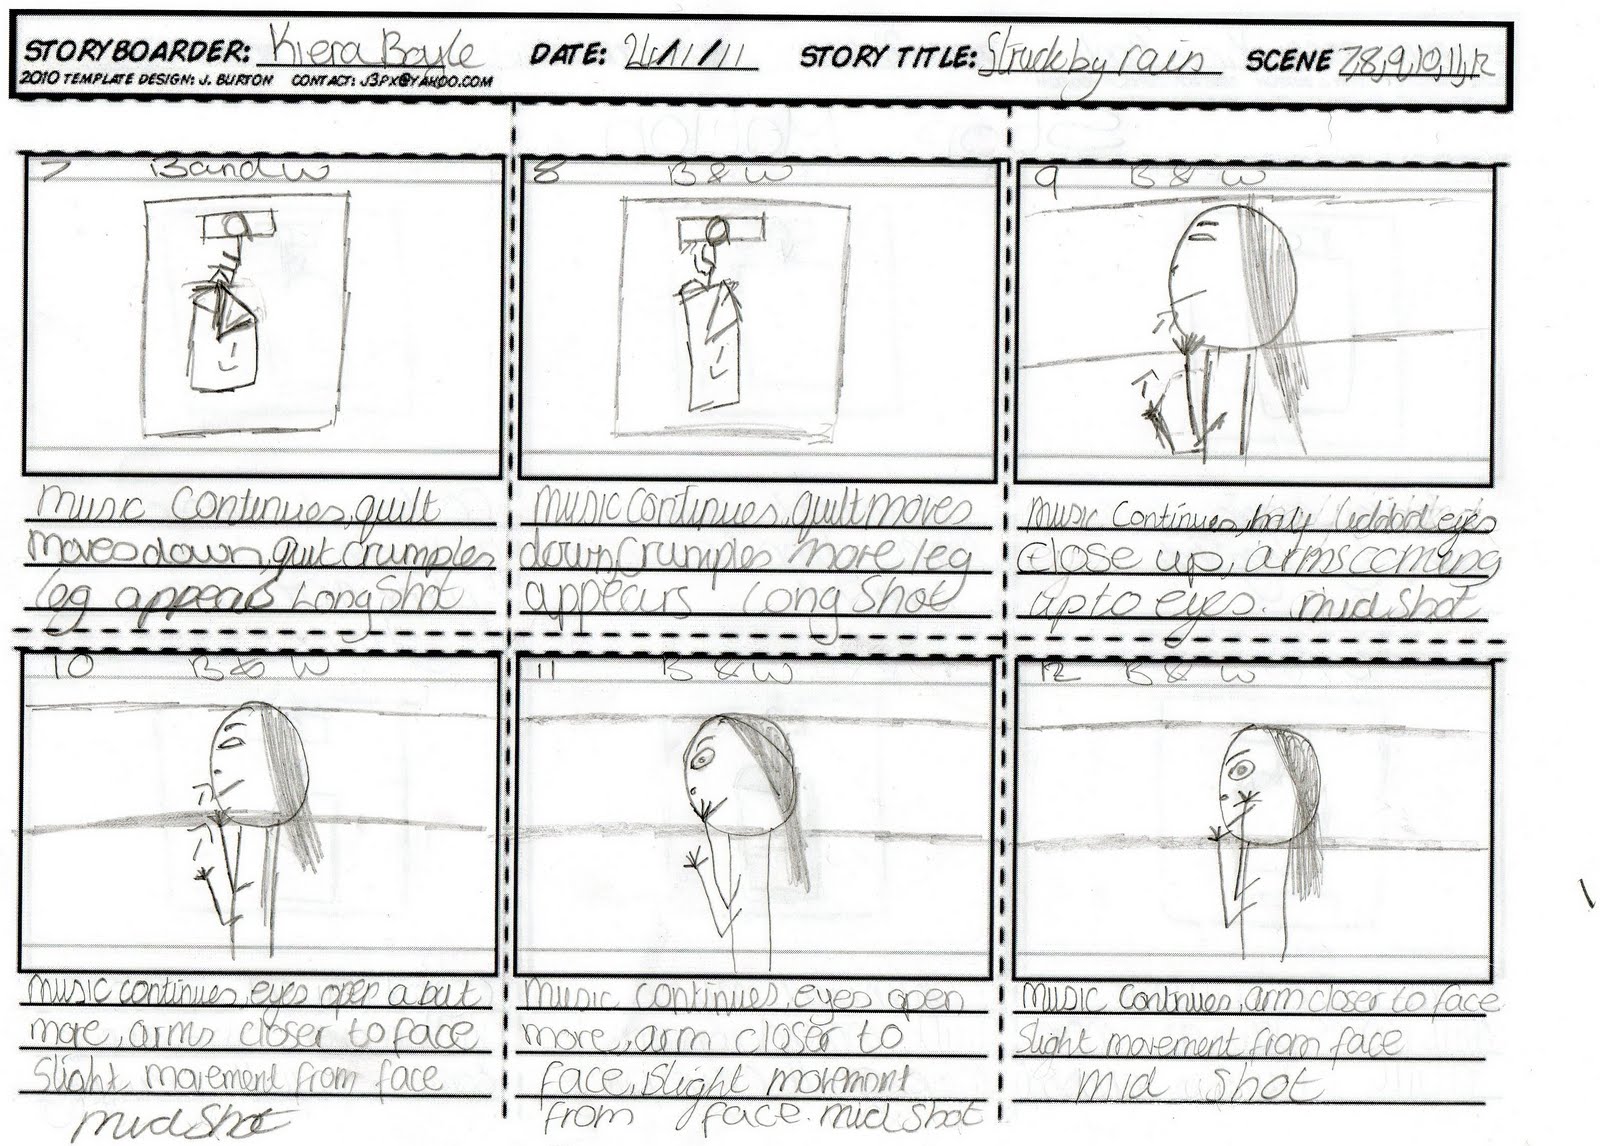 STORYBOARDER: Kiera Boyle DATE: 21/11/11 STORY TITLE: Struck by rain SCENE 7,8,9,10,11,12
2010 TEMPLATE DESIGN: J. BURTON CONTACT: J3PX@YAHOO.COM
7 B and W
music continues, quilt
moves down, quilt crumples
leg appears Long Shot
8 B & W
music continues, quilt moves
down, crumples more leg
appears long shot
9 B & W
music continues, eyes
close up, arms coming
up to eyes. mid shot
10 B & W
music continues, eyes open a but
more, arms closer to face
slight movement from face
mid shot
11 B & W
music continues, eyes open
more, arm closer to
face, slight movement
from face. mid shot
12 B & W
music continues, arm closer to face
slight movement from face
mid shot